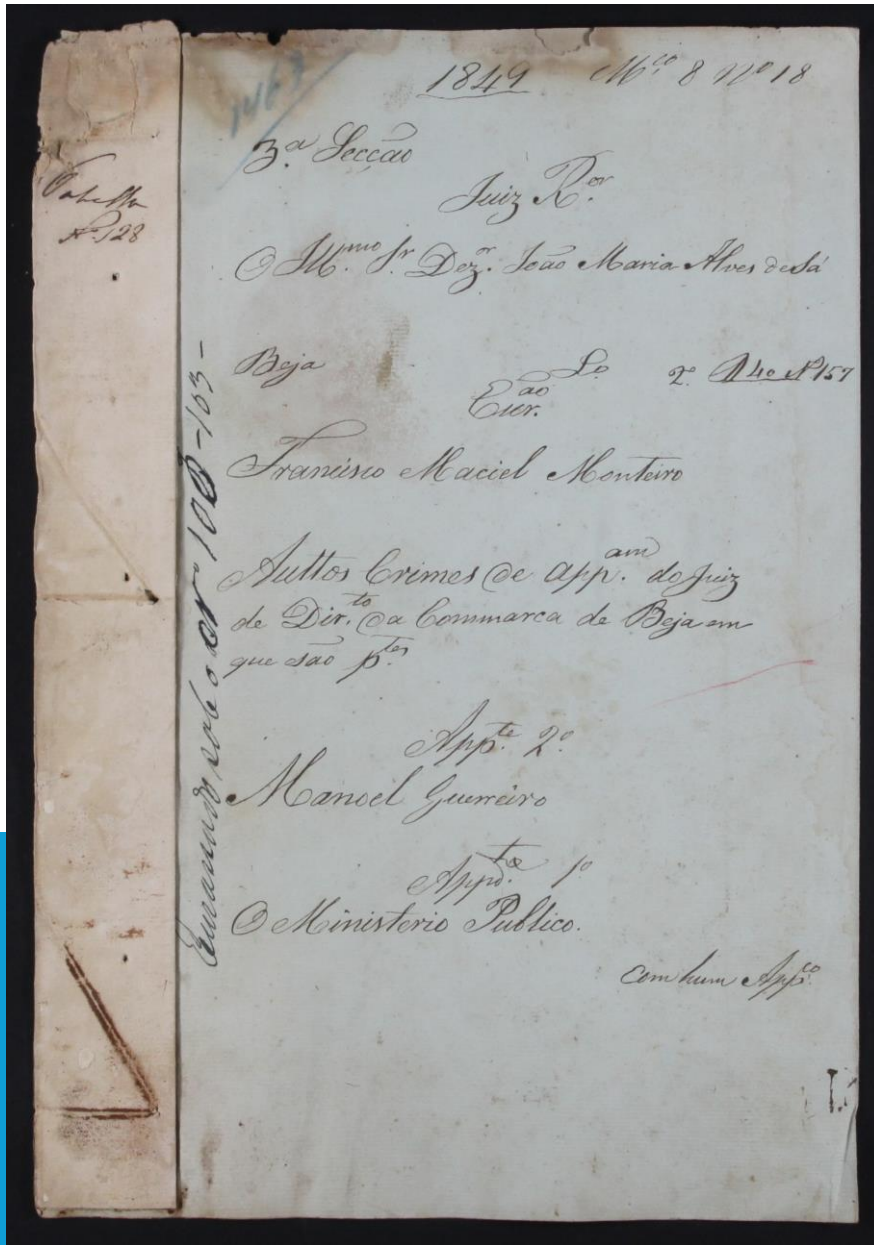 1849 M.ço 8 Nº 18
1463
3.ª Secção
Juiz R.or
O Ill.mo Sr. Dez.or João Maria Alves de Sá
Tabella
Nº 128
Beja Lº 2º Nº 157
Escr.ão
Francisco Maciel Monteiro
Auttos Crimes de App.am do Juiz
de Dir.to da Commarca de Beja em
que são p.tes
App.te 2º
Manoel Guerreiro
App.te 1º
O Ministerio Publico.
com hum App.ço
sobe o nº 103